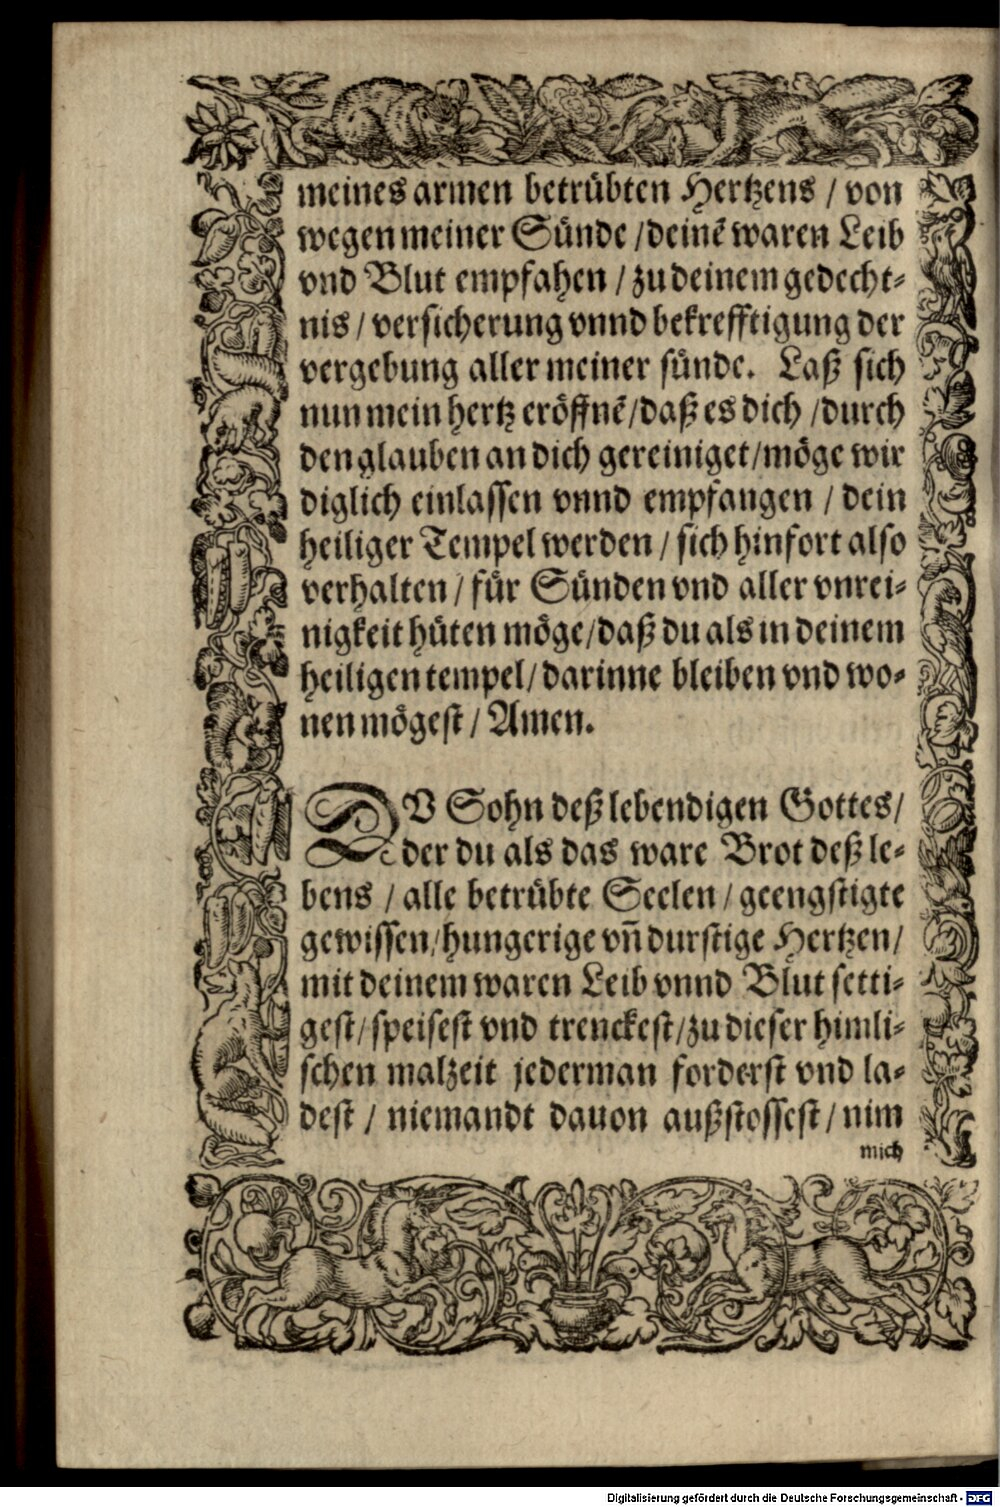 meines armen betrübten Hertzens / von
wegen meiner Sünde / deinē waren Leib
vnd Blut empfahen / zu deinem gedecht-
nis / versicherung vnnd bekrefftigung der
vergebung aller meiner sünde. Laß sich
nun mein hertz eröffnē / daß es dich / durch
den glauben an dich gereiniget / möge wir
diglich einlassen vnnd empfangen / dein
heiliger Tempel werden / sich hinfort also
verhalten / für Sünden vnd aller vnrei-
nigkeit hüten möge / daß du als in deinem
heiligen tempel / darinne bleiben vnd wo-
nen mögest / Amen.
DV Sohn deß lebendigen Gottes /
der du als das ware Brot deß le-
bens / alle betrübte Seelen / geengstigte
gewissen / hungerige vn̄ durstige Hertzen /
mit deinem waren Leib vnnd Blut setti-
gest / speisest vnd trenckest / zu dieser himli-
schen malzeit jederman forderst vnd la-
dest / niemandt dauon außstossest / nim
mich
Digitalisierung gefördert durch die Deutsche Forschungsgemeinschaft - DFG